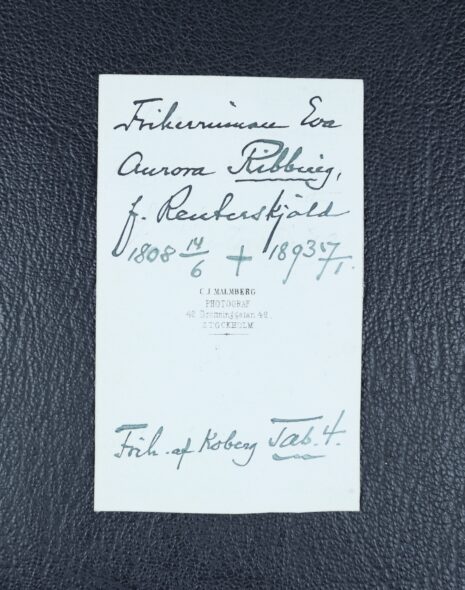 Friherrinnan Eva
Aurora Ribbing,
f. Reuterskjöld
1808 14/6 + 1893 5/1.
C. J. MALMBERG
PHOTOGRAF
42 Drottninggatan 42
STOCKHOLM
Frih. af Koberg Tab. 4.